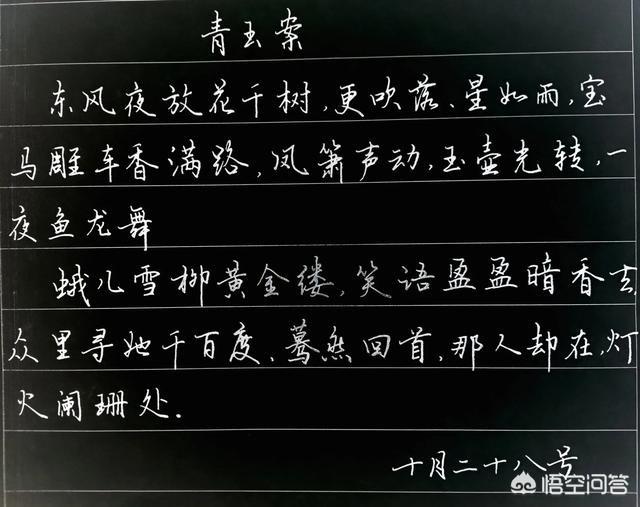 青玉案
东风夜放花千树,更吹落、星如雨,宝
马雕车香满路,凤箫声动,玉壶光转,一
夜鱼龙舞
蛾儿雪柳黄金缕,笑语盈盈暗香去
众里寻她千百度、蓦然回首,那人却在,灯
火阑珊处.
十月二十八号
悟空问答